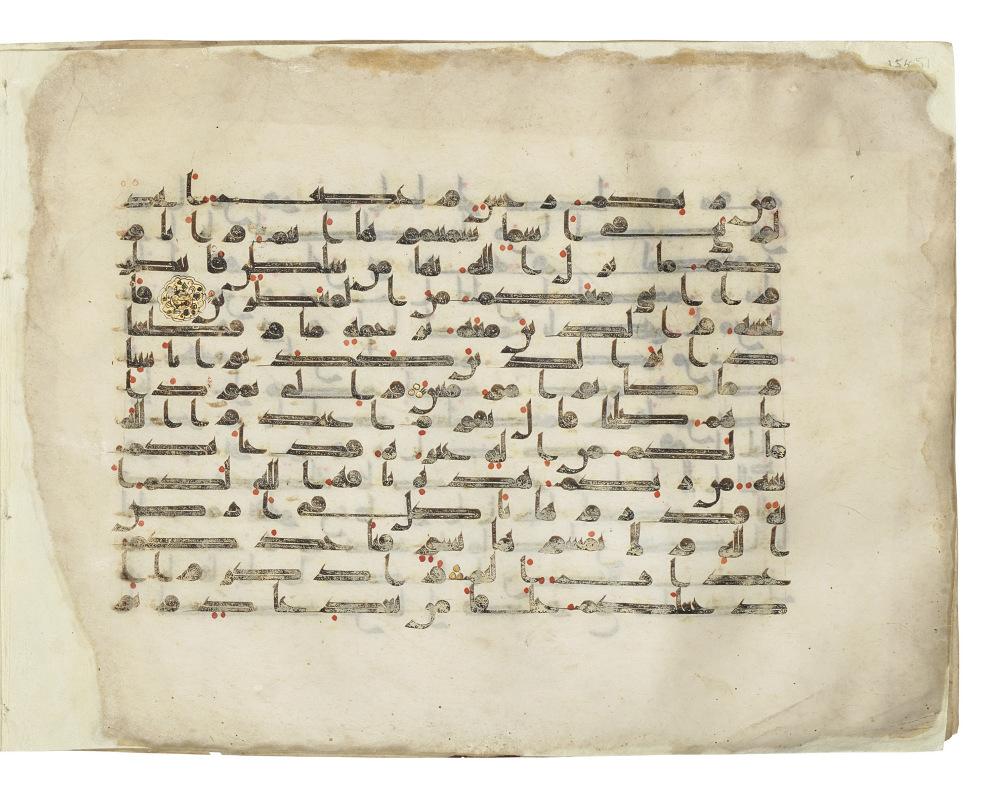 من ربكم رجس وغضب اتجد
لوننى فى اسما سميتموها انتم وابا و
كم ما نزل الله بها من سلطن فانتظر
وا انى معكم من المنتظرين فا
نجينه والذين معه برحمة منا وقطعنا
دابر الذين كذبوا بايتنا
وما كانوا مومنين والى ثمود ا
خاهم صلحا قال يقوم اعبدوا الله
ما لكم من اله غيره قد جاتكم
بينة من ربكم هذه ناقة الله لكم ا
ية فذروها تاكل فى ارض
الله ولا تمسوها بسو فياخذكم
عذاب اليم واذكروا ا
ذ جعلكم خلفا من بعد عاد وبو